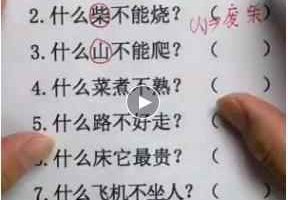 2.什么柴不能烧？（
3.什么山不能爬？（ ）
4.什么菜煮不熟？（ ）
5.什么路不好走？（ ）
6.什么床它最贵？（
7.什么飞机不坐人？（ ）